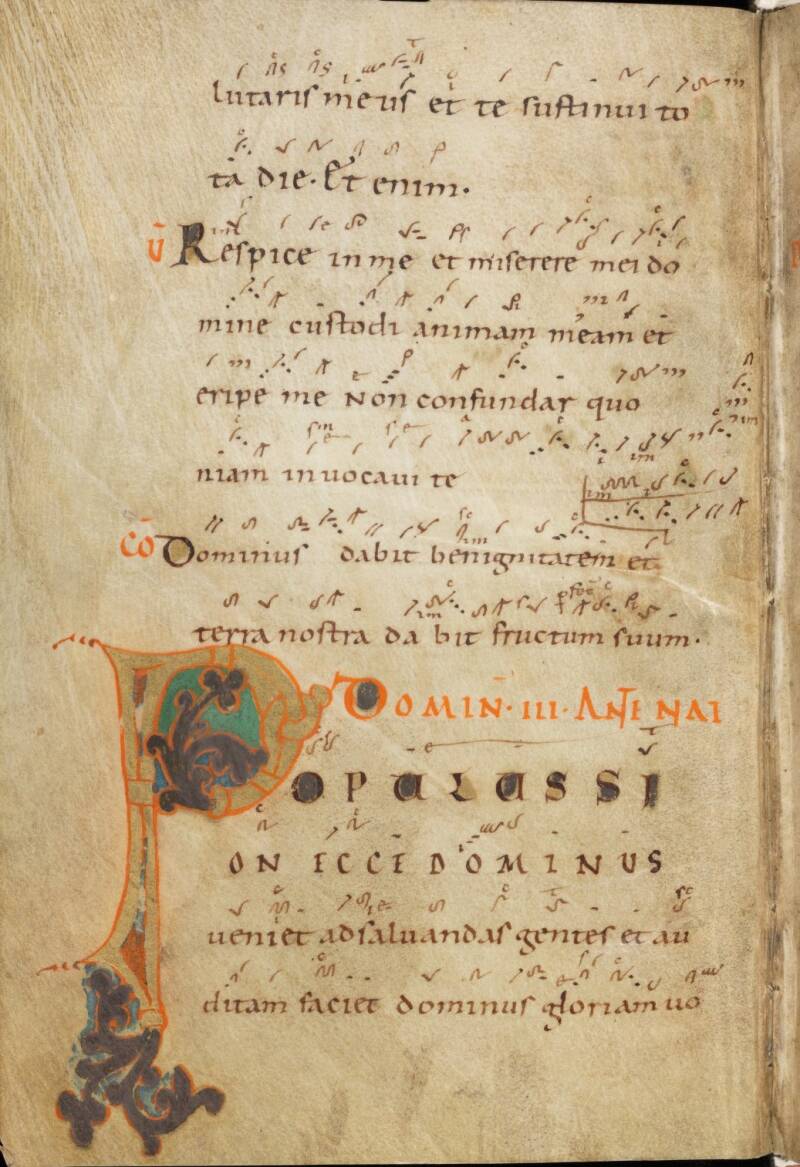 lutaris meus et te sustinui to
ta die. Et enim.
V̄ Respice in me et miserere mei do
mine custodi animam meam et
eripe me Non confundar quo
niam inuocaui te
CŌ Dominus dabit benignitatem et
terra nostra dabit fructum suum.
DOMIN̄. III. ANT̄ E NAT
POPULUS SI
ON ECCE DOMINUS
ueniet ad saluandas gentes et au
ditam faciet dominus gloriam uo